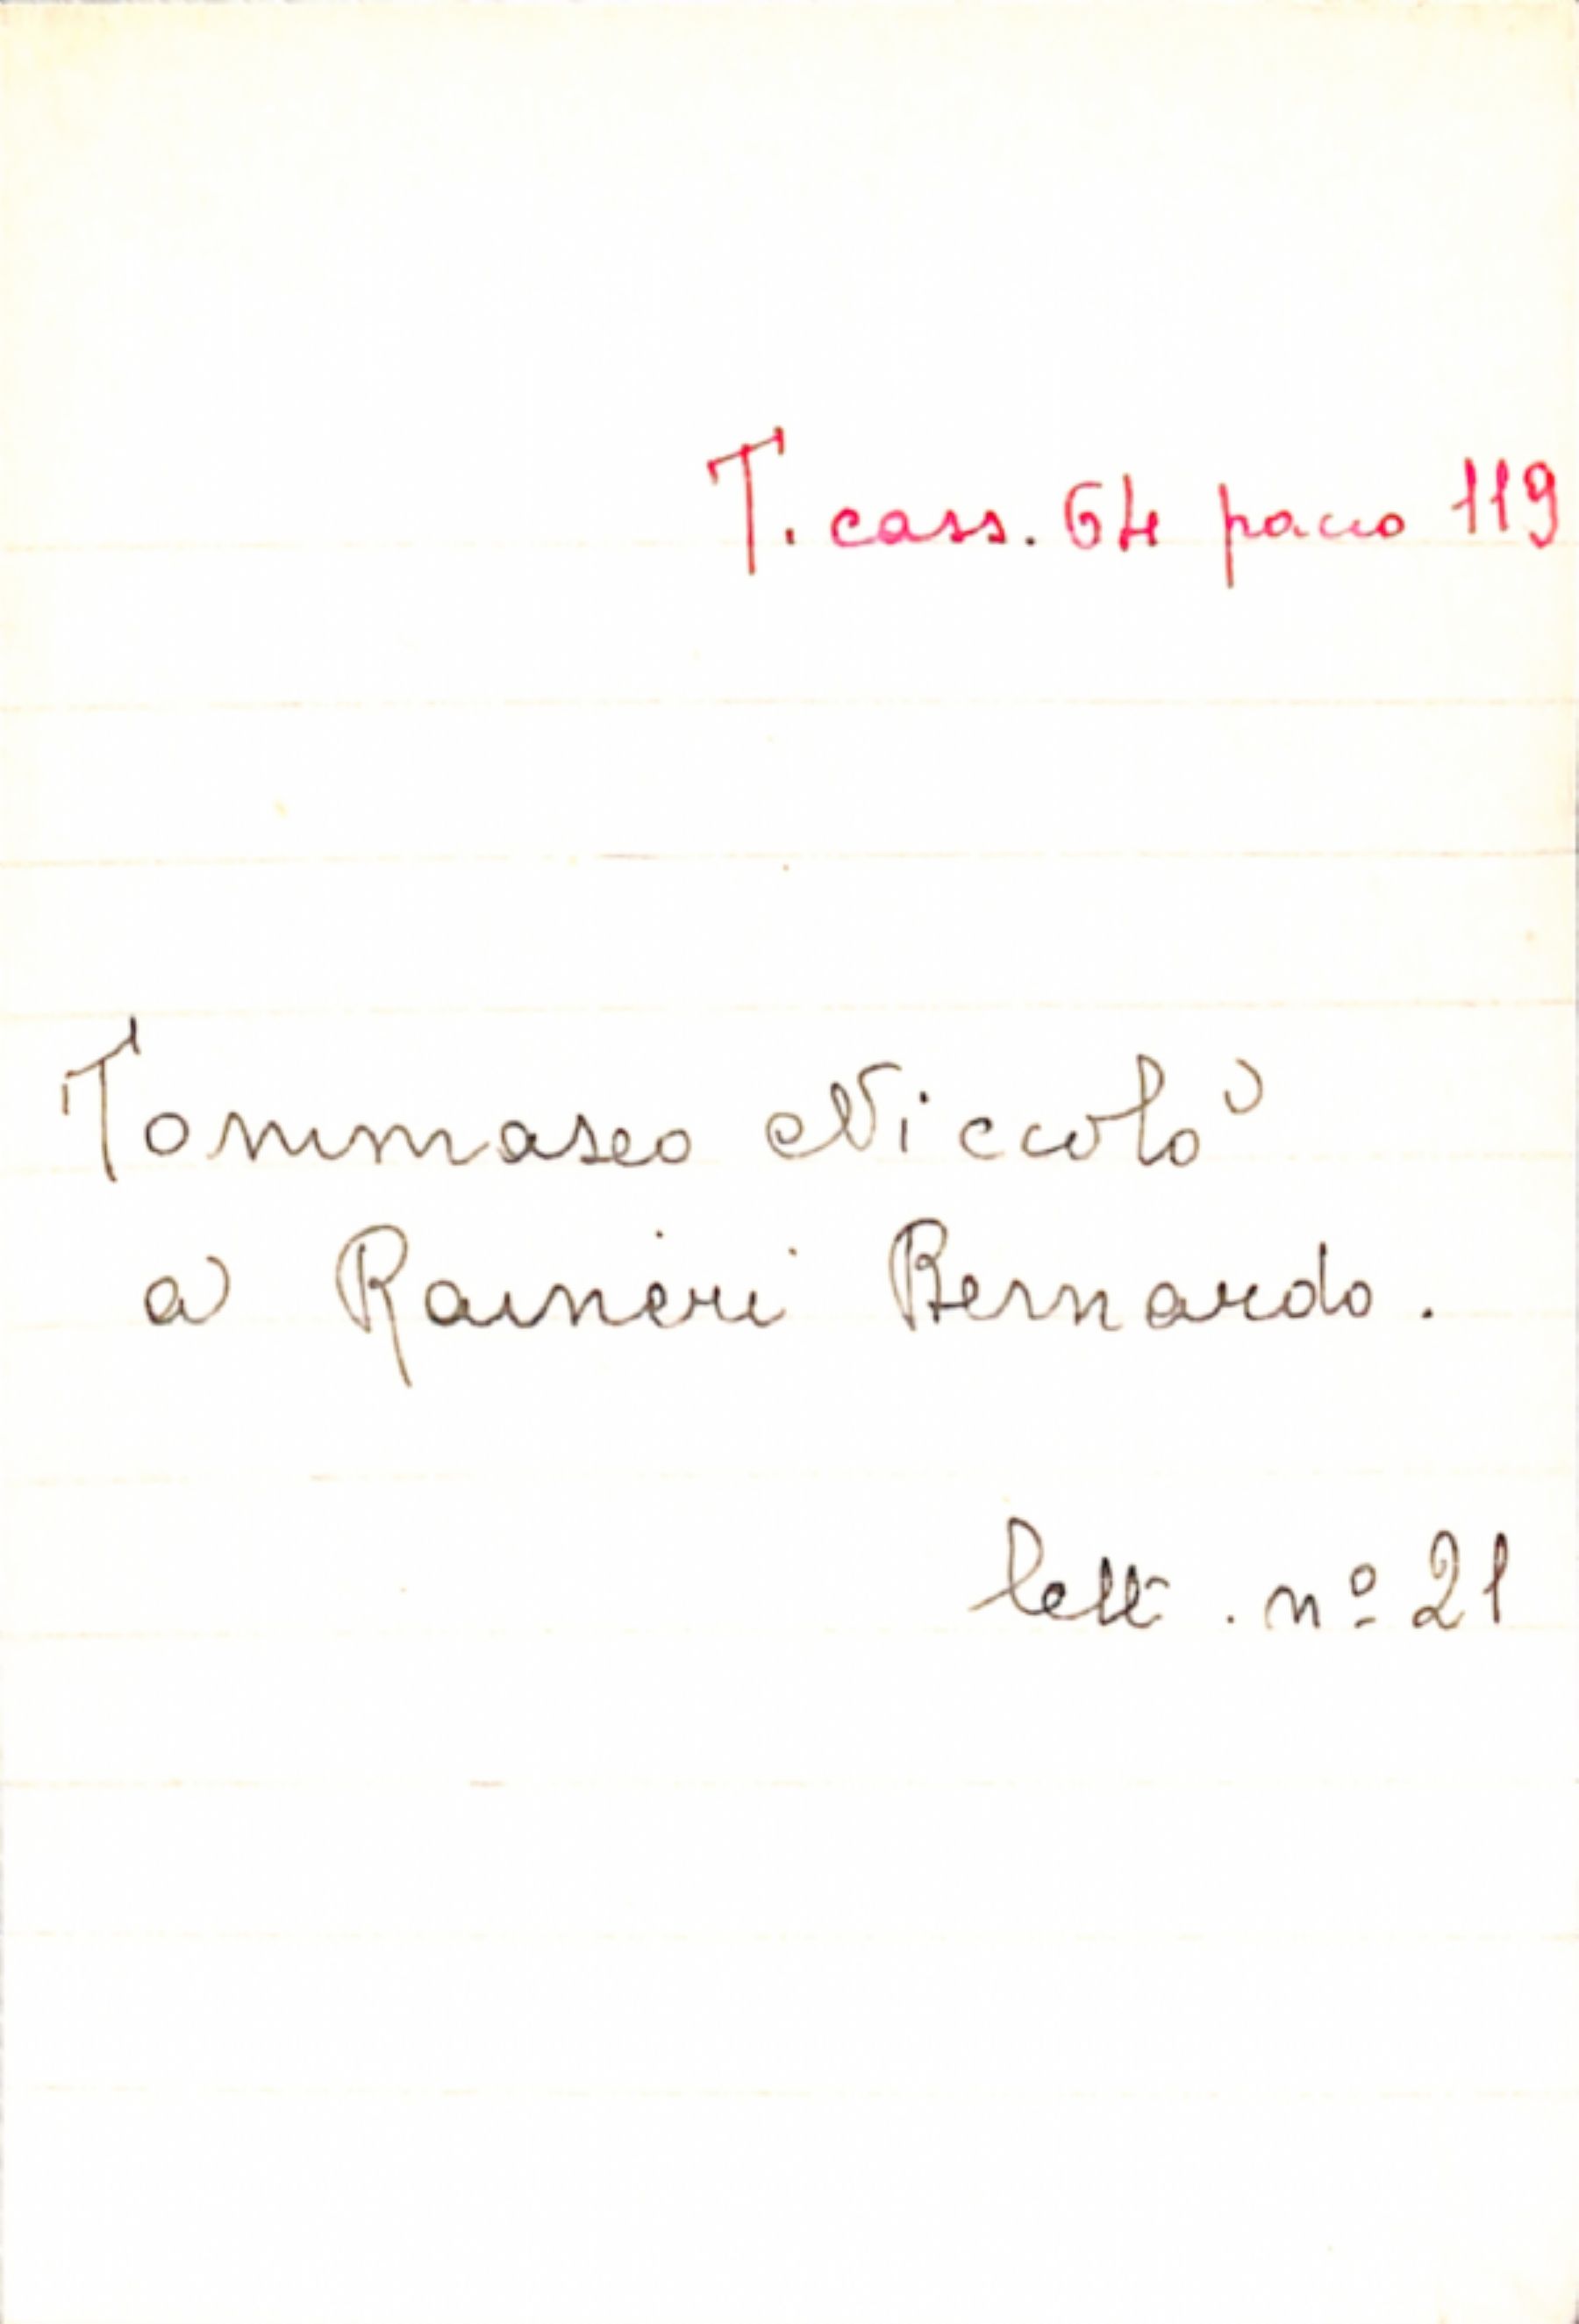 T. cass. 64 pacco 119
Tommaseo Niccolò
a Raineri Bernardo.
lett. nº 21